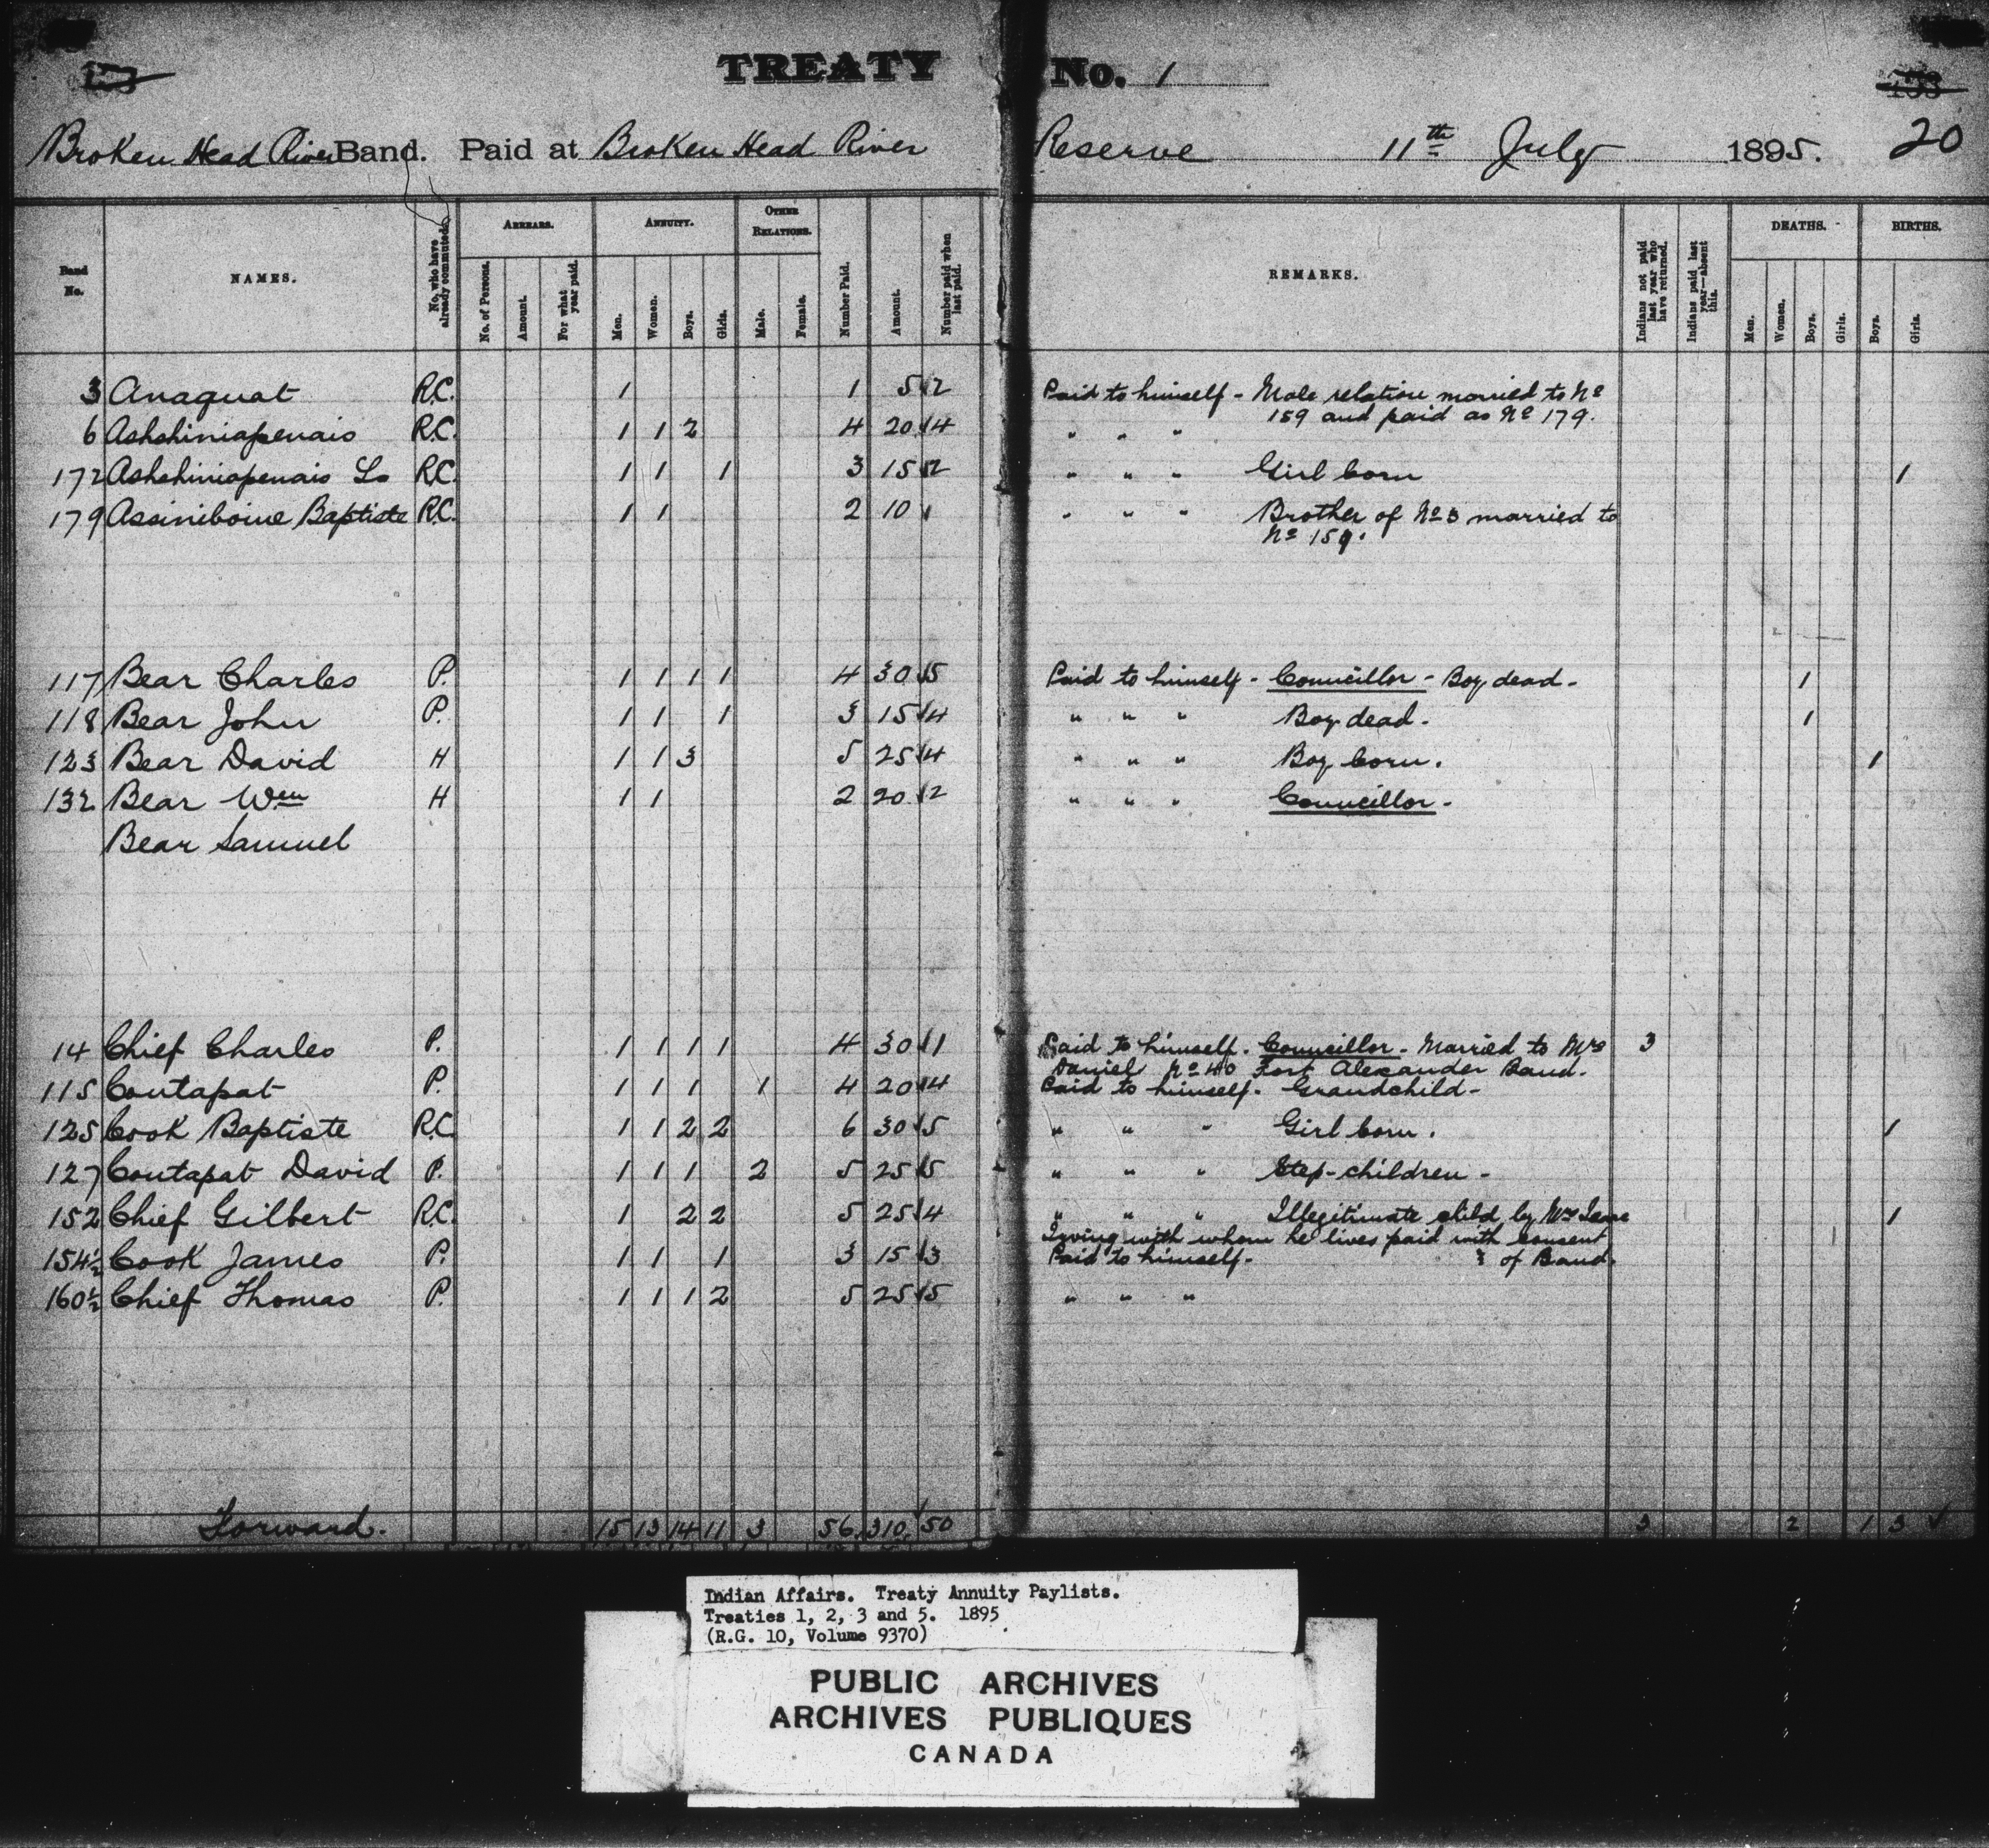 TREATY No. 1
Broken Head River Band. Paid at Broken Head River Reserve 11th July 1895. 20
Band No. NAMES. No. who have already commuted. ARREARS. ANNUITY. OTHER RELATIONS. Number Paid. Amount. Number paid when last paid. REMARKS. Indians not paid last year who have returned. Indians paid last year—absent this. DEATHS. BIRTHS.
No. of Persons. Amount. For what year paid. Men. Women. Boys. Girls. Male. Female. Men. Women. Boys. Girls. Boys. Girls.
3 Anaquat R.C. 1 1 5 2 Paid to himself - Male relation married to No
159 and paid as No 179.
6 Ashshiniapenais R.C. 1 1 2 4 20 4 " " "
172 Ashshiniapenais Ls R.C. 1 1 1 3 15 2 " " " Girl born 1
179 Assiniboine Baptiste R.C. 1 1 2 10 " " " Brother of No 3 married to
No 159.
117 Bear Charles P. 1 1 1 1 4 30 5 Paid to himself - Councillor - Boy dead - 1
118 Bear John P. 1 1 1 3 15 4 " " " Boy dead. 1
123 Bear David H 1 1 3 5 25 4 " " " Boy born. 1
132 Bear Wm H 1 1 2 20 2 " " " Councillor -
Bear Samuel
14 Chief Charles P. 1 1 1 1 4 30 1 Paid to himself. Councillor - Married to Mrs 3
Daniel No 40 Fort Alexander Band.
115 Coutapat P. 1 1 1 1 4 20 4 Paid to himself. Grandchild -
125 Cook Baptiste R.C. 1 1 2 2 6 30 5 " " " Girl born. 1
127 Coutapat David P. 1 1 1 2 5 25 5 " " " Step-children -
152 Chief Gilbert R.C. 1 2 2 5 25 4 " " " Illegitimate child by Mrs 1
living with whom he lives paid with consent
154½ Cook James P. 1 1 1 3 15 3 Paid to himself. of Band.
160½ Chief Thomas P. 1 1 1 2 5 25 5 " " "
Forward. 15 13 14 11 3 56 310 50 3 2 1 3
Indian Affairs. Treaty Annuity Paylists.
Treaties 1, 2, 3 and 5. 1895
(R.G. 10, Volume 9370)
PUBLIC ARCHIVES
ARCHIVES PUBLIQUES
CANADA